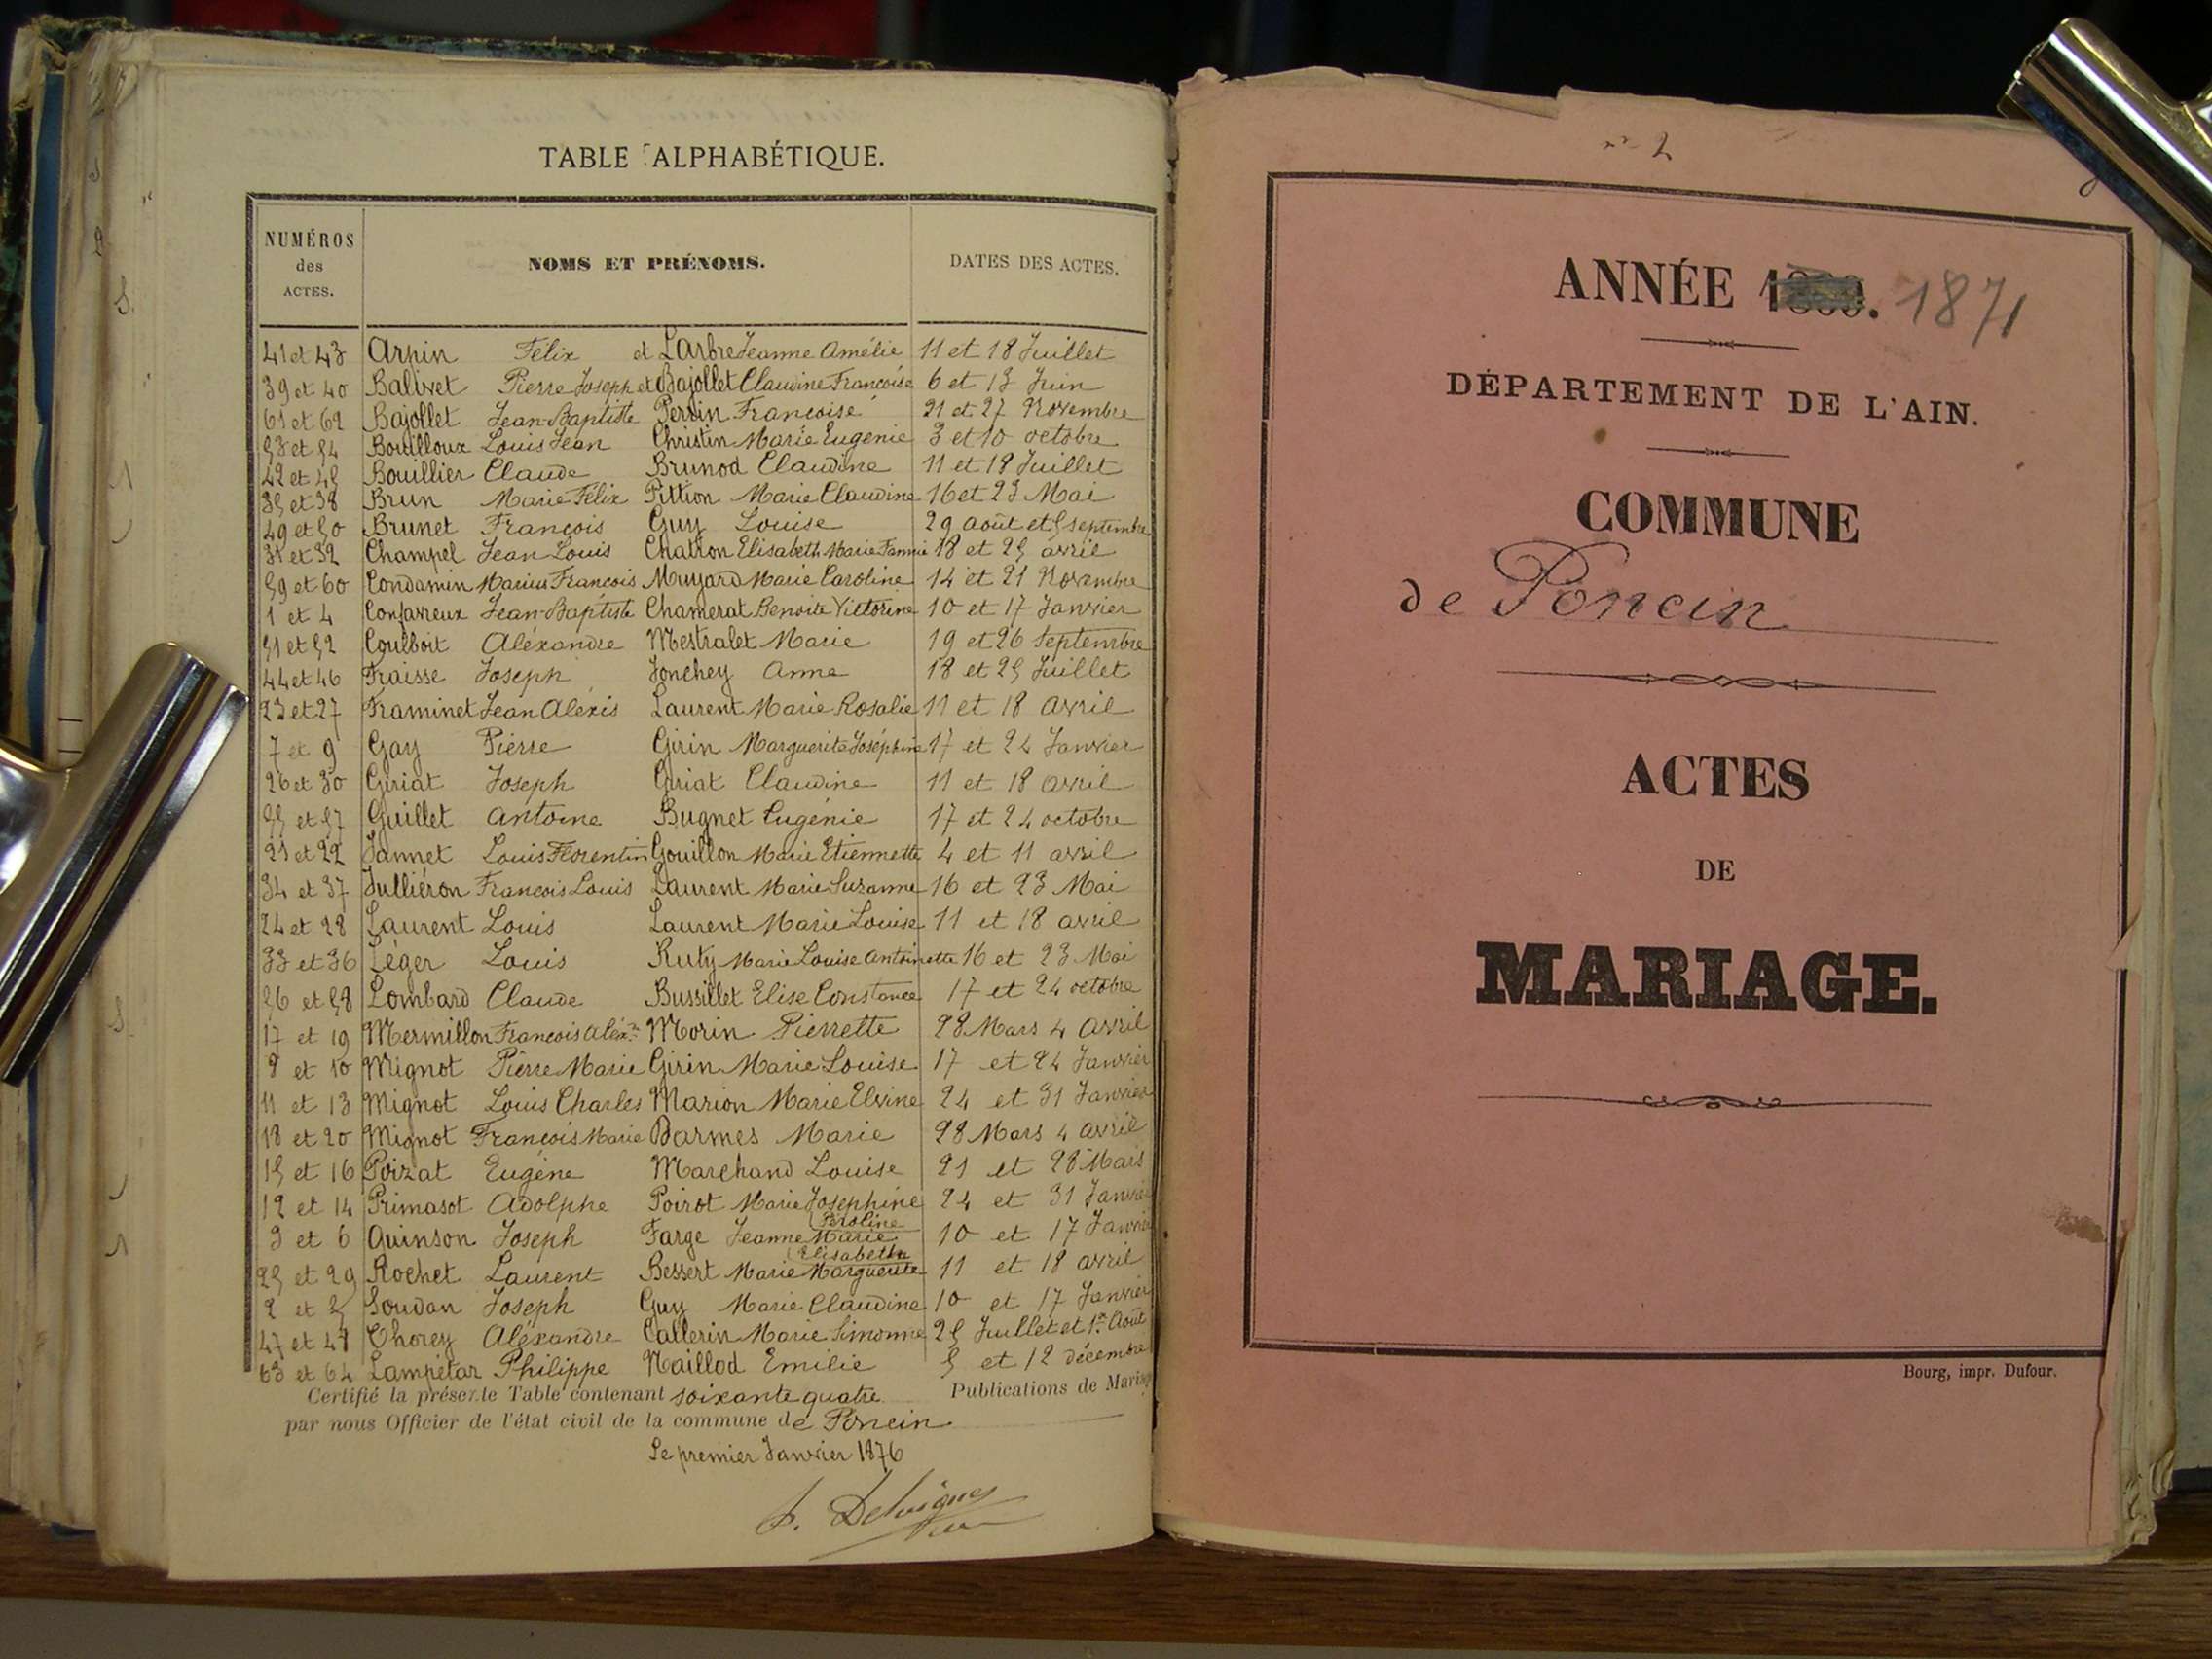 TABLE ALPHABÉTIQUE.
NUMÉROS des ACTES. NOMS ET PRÉNOMS. DATES DES ACTES.
41 et 43 Arpin Félix et Larbre Jeanne Amélie 11 et 18 Juillet
39 et 40 Balivet Pierre Joseph et Bajollet Claudine Françoise 6 et 13 Juin
61 et 62 Bajollet Jean-Baptiste Perrin Francoise 21 et 27 Novembre
53 et 54 Bouilloux Louis Jean Christin Marie Eugenie 3 et 10 octobre
42 et 45 Bouillier Claude Brunod Claudine 11 et 18 Juillet
35 et 38 Brun Marie Félix Pittion Marie Claudine 16 et 23 Mai
49 et 50 Brunet François Guy Louise 29 août et 5 septembre
31 et 32 Champel Jean Louis Chatron Elisabeth Marie Fannie 18 et 25 avril
59 et 60 Condamin Marius François Muyard Marie Caroline 14 et 21 Novembre
1 et 4 Confavreux Jean-Baptiste Chamerat Benoite Victorine 10 et 17 Janvier
51 et 52 Coulboit Aléxandre Mestralet Marie 19 et 26 Septembre
44 et 46 Fraisse Joseph Jonchey Anne 18 et 25 Juillet
23 et 27 Framinet Jean Aléxis Laurent Marie Rosalie 11 et 18 avril
7 et 9 Gay Pierre Girin Marguerite Joséphine 17 et 24 Janvier
26 et 30 Giriat Joseph Giriat Claudine 11 et 18 avril
55 et 57 Guillet Antoine Bugnet Eugénie 17 et 24 octobre
21 et 22 Jannet Louis Florentin Gouillon Marie Etiennette 4 et 11 avril
34 et 37 Julliéron Francois Louis Laurent Marie Suzanne 16 et 23 Mai
24 et 28 Laurent Louis Laurent Marie Louise 11 et 18 avril
33 et 36 Léger Louis Ruty Marie Louise Antoinette 16 et 23 Mai
56 et 58 Lombard Claude Bussillet Elise Constance 17 et 24 octobre
17 et 19 Mermillon François Aléx. Morin Pierrette 28 Mars 4 avril
8 et 10 Mignot Pierre Marie Girin Marie Louise 17 et 24 Janvier
11 et 13 Mignot Louis Charles Marion Marie Elvine 24 et 31 Janvier
18 et 20 Mignot François Marie Darmes Marie 28 Mars 4 avril
15 et 16 Poizat Eugène Marchand Louise 21 et 28 Mars
12 et 14 Primasot Adolphe Poirot Marie Josephine 24 et 31 Janvier
Péroline
3 et 6 Quinson Joseph Farge Jeanne Marie 10 et 17 Janvier
Elisabeth
25 et 29 Rochet Laurent Bessert Marie Marguerite 11 et 18 avril
2 et 5 Soudan Joseph Guy Marie Claudine 10 et 17 Janvier
47 et 48 Thorey Aléxandre Callerin Marie Simonne 25 Juillet et 1er Août
63 et 64 Lampétar Philippe Naillod Emilie 5 et 12 décembre
Certifié la présente Table contenant soixante quatre Publications de Mariage
par nous Officier de l'état civil de la commune de Poncin
Le premier Janvier 1876
n° 2
ANNÉE 1869. 1871
DÉPARTEMENT DE L'AIN.
COMMUNE
de Poncin
ACTES
DE
MARIAGE.
Bourg, impr. Dufour.